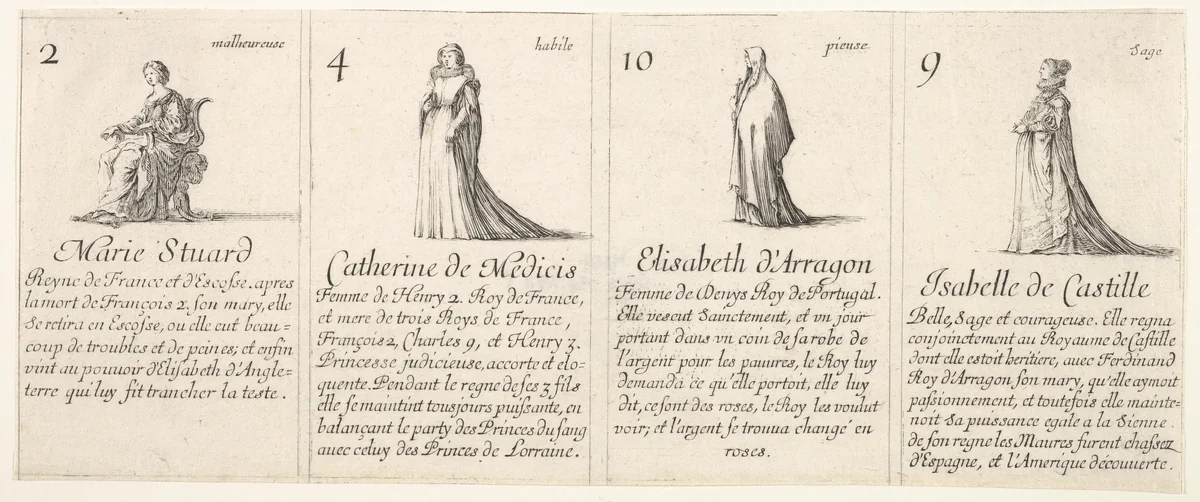 2
malheureuse
Marie Stuard
Reyne de France et d'Escosse. apres
la mort de François 2. son mary, elle
se retira en Escosse, ou elle eut beau=
coup de troubles et de peines; et enfin
vint au pouuoir d'Elisabeth d'Angle=
terre qui luy fit trancher la teste.
4
habile
Catherine de Medicis
Femme de Henry 2. Roy de France,
et mere de trois Roys de France,
François 2, Charles 9, et Henry 3.
Princesse judicieuse, accorte et elo=
quente. Pendant le regne de ses 3 fils
elle se maintint tousjours puissante, en
balançant le party des Princes du sang
auec celuy des Princes de Lorraine.
10
pieuse
Elisabeth d'Arragon
Femme de Denys Roy de Portugal.
Elle vescut Sainctement, et vn jour
portant dans vn coin de sa robe de
l'argent pour les pauures, le Roy luy
demanda ce qu'elle portoit, elle luy
dit, ce sont des roses, le Roy les voulut
voir; et l'argent se trouua changé en
roses.
9
Sage
Isabelle de Castille
Belle, Sage et courageuse. Elle regna
conjoinctement au Royaume de Castille
dont elle estoit heritiere, auec Ferdinand
Roy d'Arragon son mary, qu'elle aymoit
passionnement, et toutefois elle mainte=
noit Sa puissance egale a la Sienne.
de son regne les Maures furent chassez
d'Espagne, et l'Amerique découuerte.